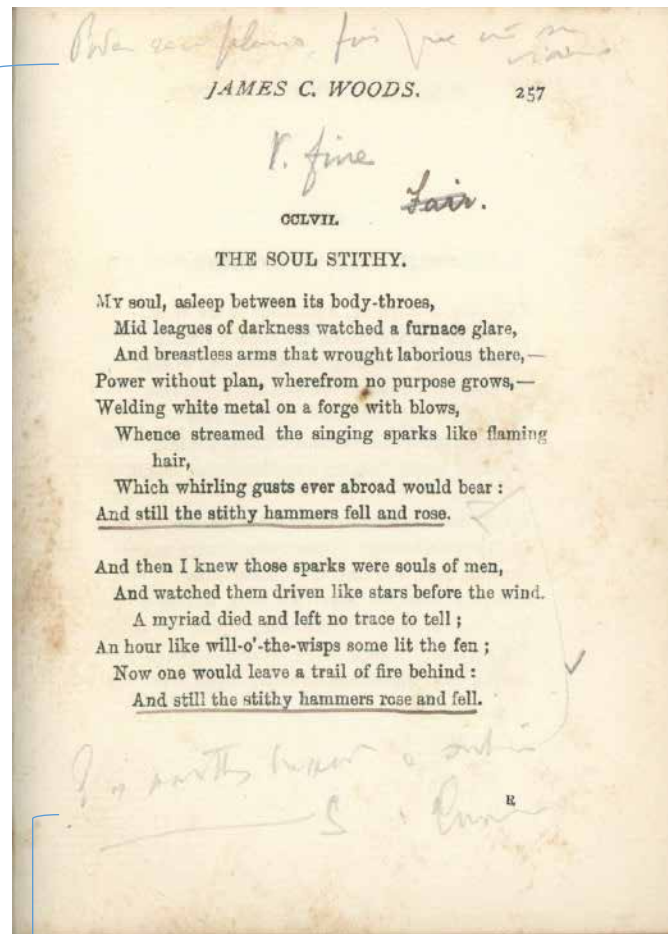 JAMES C. WOODS.
257
V. fine
Fair.
CCLVII.
THE SOUL STITHY.
My soul, asleep between its body-throes,
Mid leagues of darkness watched a furnace glare,
And breastless arms that wrought laborious there,—
Power without plan, wherefrom no purpose grows,—
Welding white metal on a forge with blows,
Whence streamed the singing sparks like flaming
hair,
Which whirling gusts ever abroad would bear :
And still the stithy hammers fell and rose.
And then I knew those sparks were souls of men,
And watched them driven like stars before the wind.
A myriad died and left no trace to tell ;
An hour like will-o'-the-wisps some lit the fen ;
Now one would leave a trail of fire behind :
And still the stithy hammers rose and fell.
R